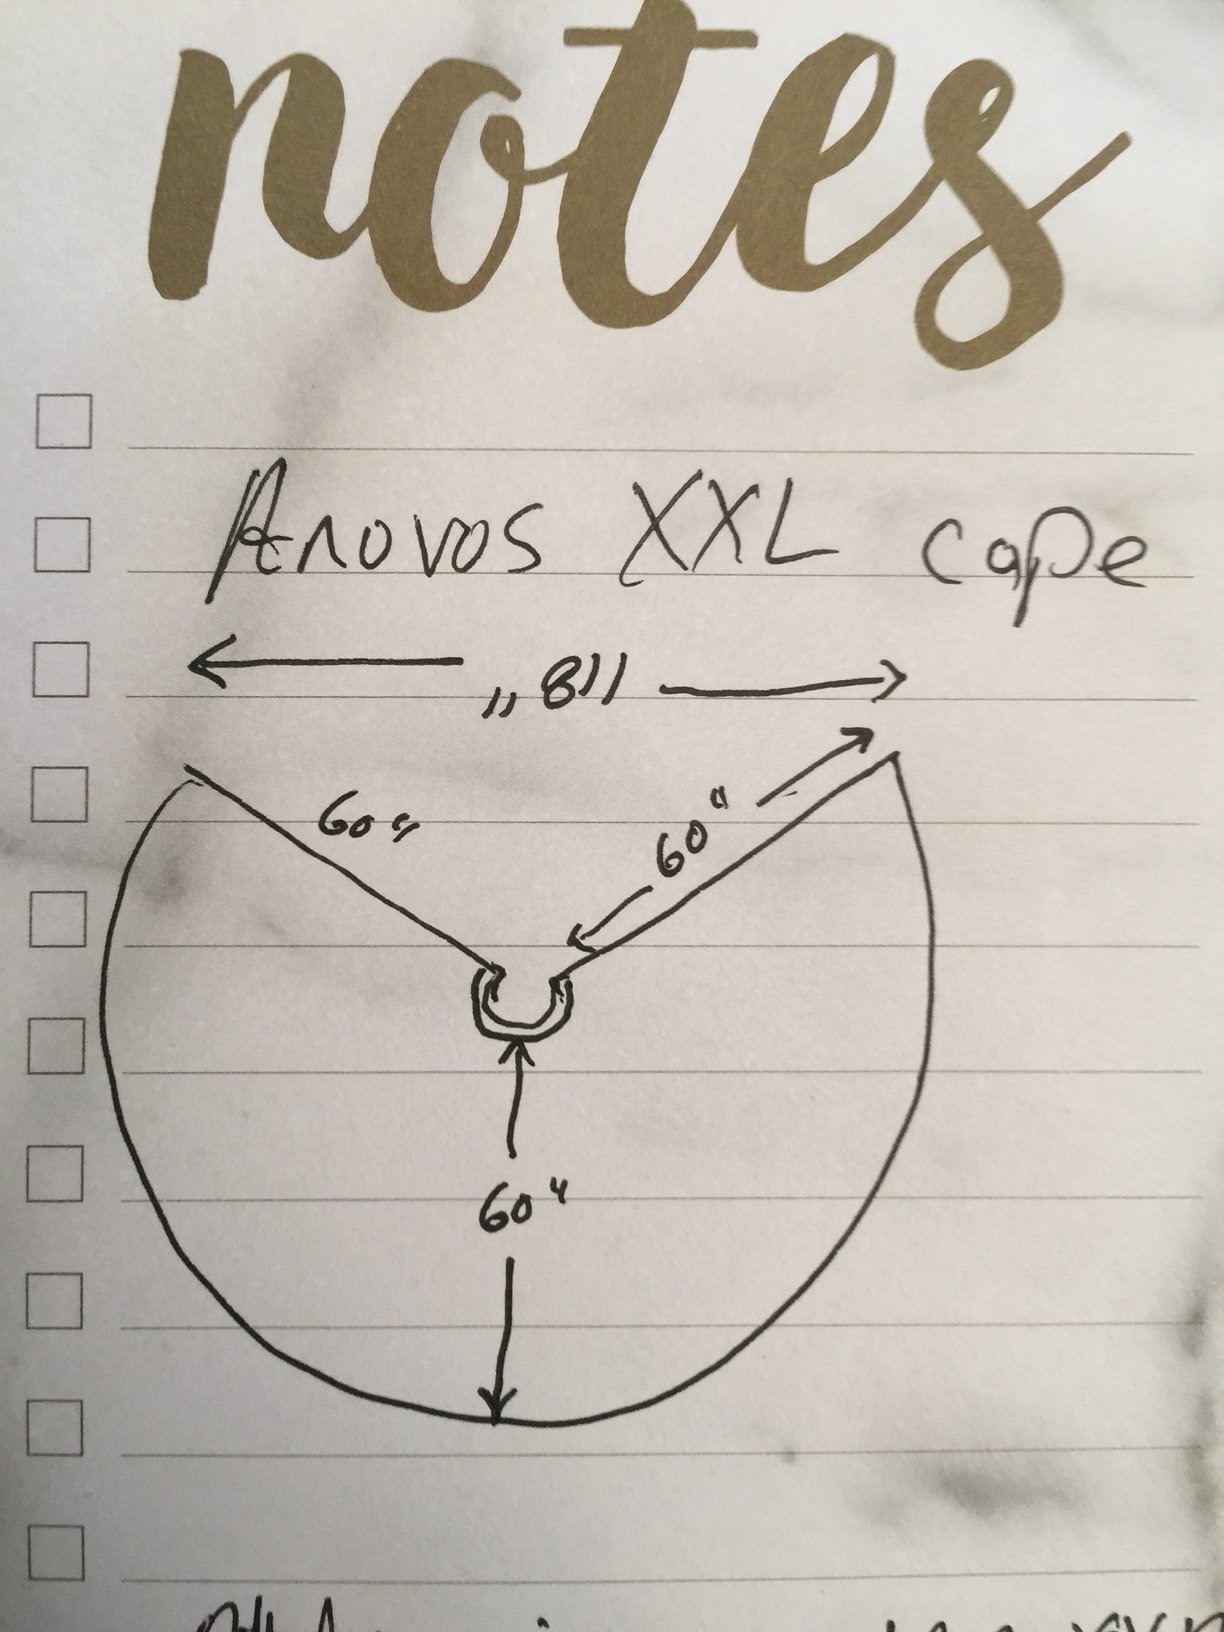 notes
Anovos XXL cape
118"
60"
60"
60"